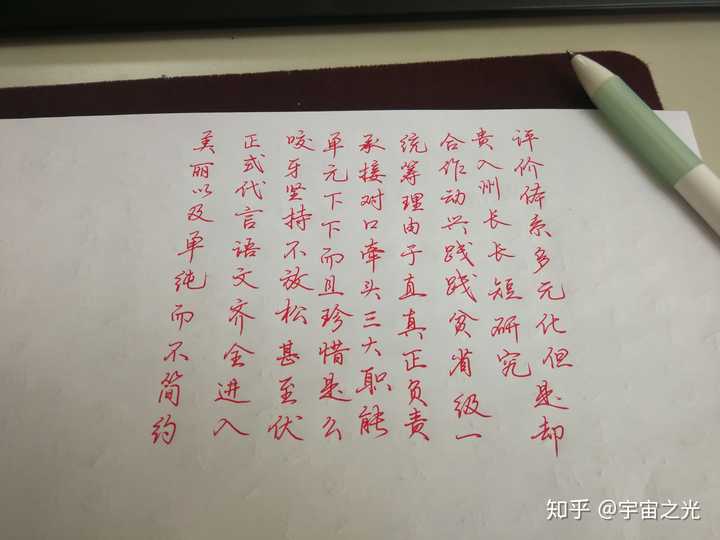 评价体系多元化但是却
贵入州长长短研究
合作动兴践践贫省级一
统筹理由于直真正负责
承接对口牵头三大职能
单元下下而且珍惜是么
咬牙坚持不放松甚至伏
正式代言语文齐全进入
美丽以及单纯而不简约
知乎 @宇宙之光